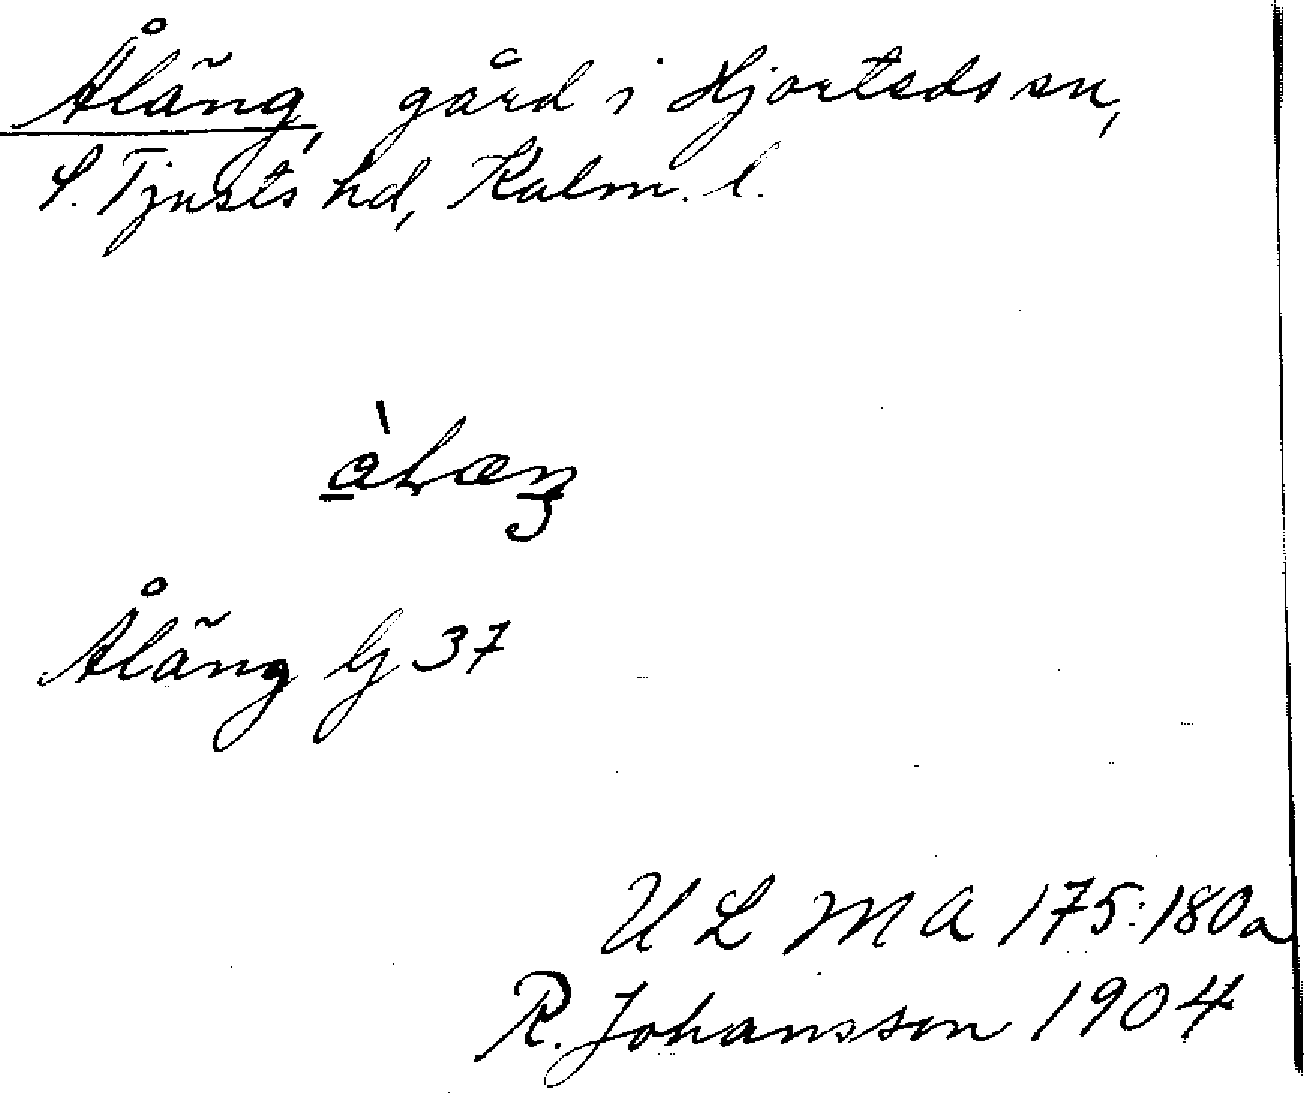 Åläng, gård i Hjorteds sn,
S. Tjusts hd, Kalm. l.
Åläng G 37
U L M A 175:180a
R. Johansson 1904